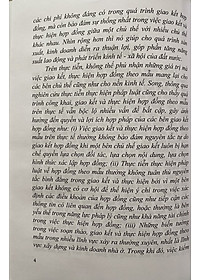 các chi phí không đáng có trong quá trình giao kết hợp
đồng, mà còn bảo đảm sự thống nhất trong việc giao kết,
thực hiện hợp đồng giữa một chủ thể với nhiều chủ thể
khác nhau. Nhìn rộng hơn thì nó giúp cho quá trình sản
xuất, kinh doanh diễn ra thuận lợi, góp phần tăng năng
suất lao động và phát triển kinh tế - xã hội của đất nước.
Trên thực tiễn, không thể phủ nhận những giá trị mà
việc giao kết, thực hiện hợp đồng theo mẫu mang lại cho
các bên chủ thể cũng như cho nền kinh tế. Song, thông qua
nghiên cứu thực tiễn thực hiện pháp luật cũng cho thấy quá
trình giao kết và thực hiện hợp đồng theo mẫu hiện nay
trên thực tế vẫn bộc lộ nhiều vấn đề bất cập, gây ảnh
hưởng đến quyền và lợi ích hợp pháp của các bên giao kết
hợp đồng như: (i) Việc giao kết và thực hiện hợp đồng theo
mẫu trên thực tế thường không bảo đảm nguyên tắc tự do
giao kết hợp đồng khi một bên chủ thể giao kết luôn bị hạn chế
quyền lựa chọn đối tác, lựa chọn nội dung, lựa chọn
hình thức xác lập hợp đồng; (ii) Thực tiễn thực hiện pháp
luật về hợp đồng theo mẫu thường không tuân thủ nguyên
tắc bình đẳng trong giao kết và thực hiện bởi vì một bên
giao kết không có cơ hội để thể hiện ý chí trong việc xác
định các điều khoản của hợp đồng cũng như tiếp cận các
thông tin có liên quan đến hợp đồng, hoặc thường là bên
yếu thế trong năng lực pháp lý cũng như khả năng tài chính
trong thực hiện hợp đồng; (iii) Những biến tướng
trong việc soạn thảo, giao kết và thực hiện hợp đồng theo
mẫu trong nhiều lĩnh vực xảy ra thường xuyên, nhất là lĩnh
vực xây dựng và kinh doanh nhà ở. Trong khi đó, việc kiểm
4